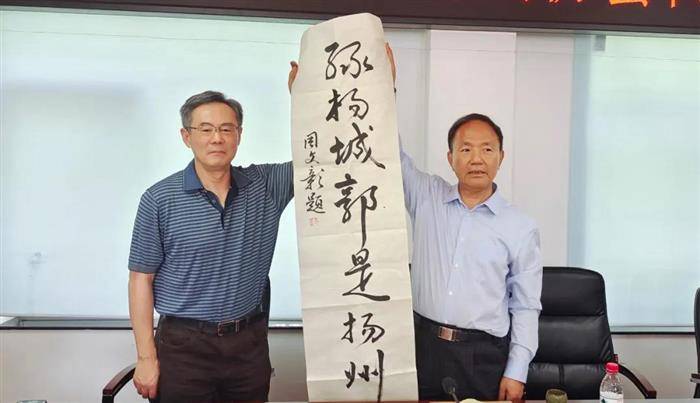 绿杨城郭是扬州
周文彰题